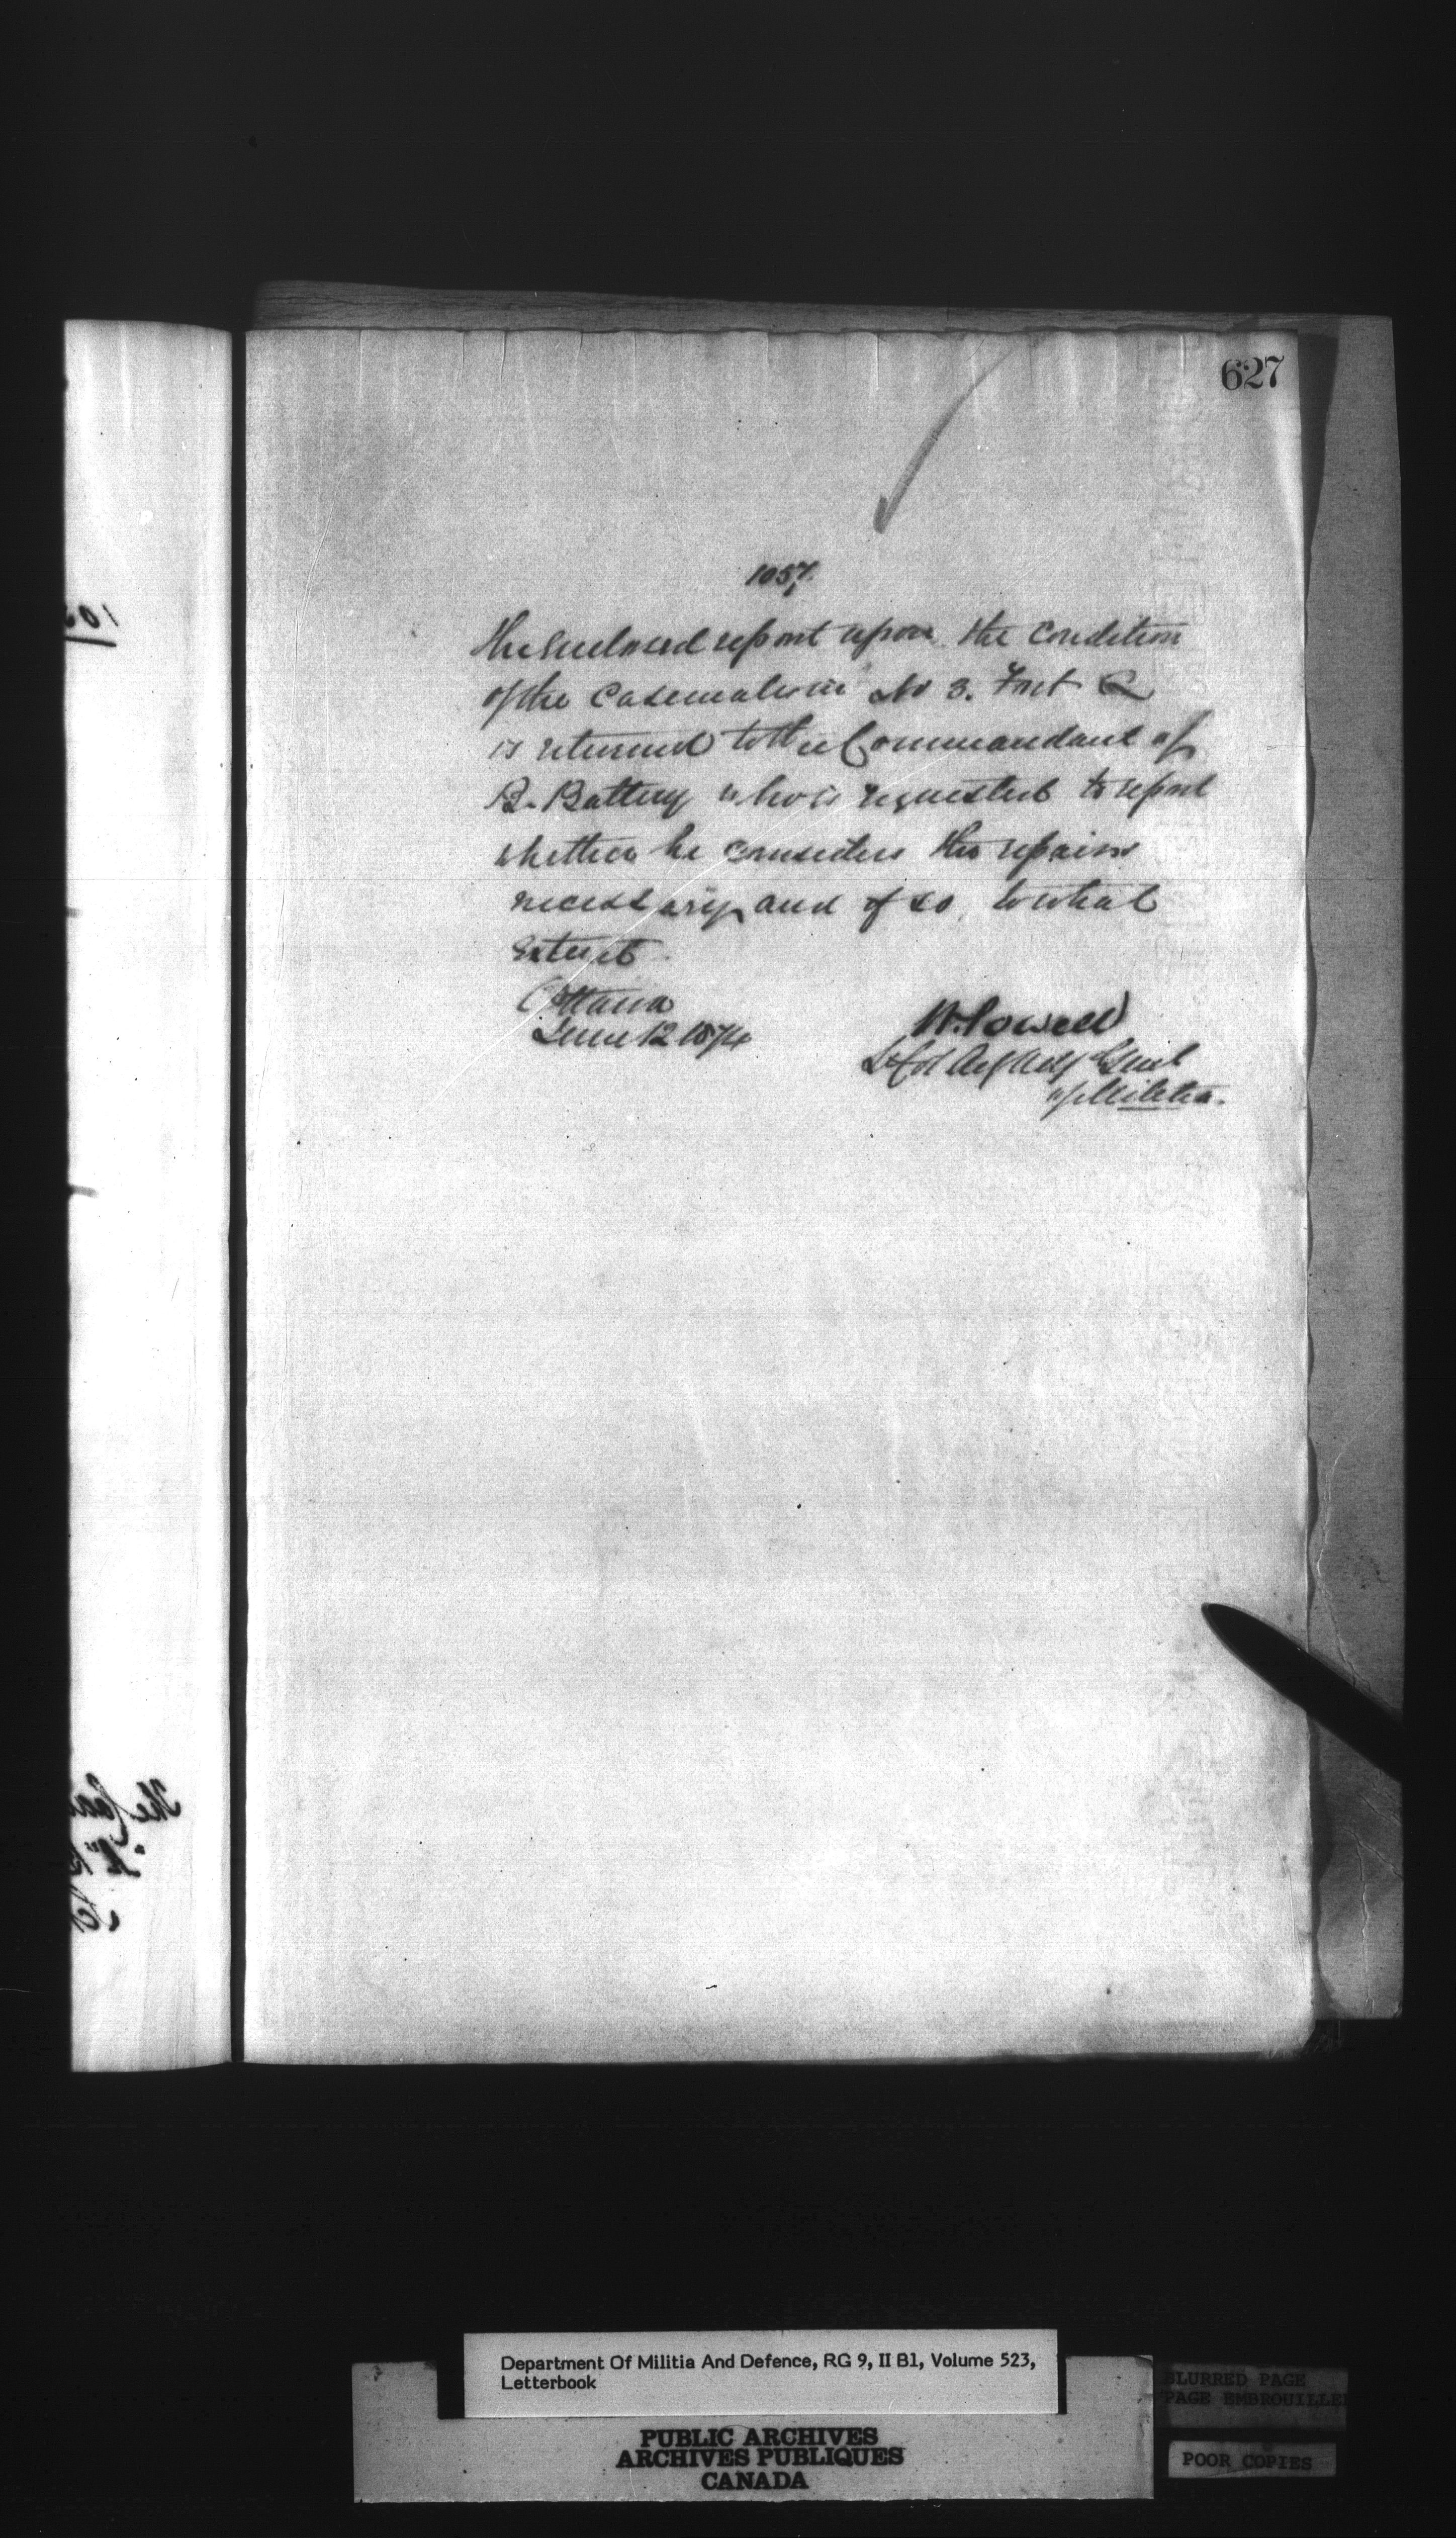 627
1057.
The enclosed report upon the condition
of the Casemates in No 3. Fort
is returned to the Commandant of
B. Battery who is requested to report
whether he considers the repairs
necessary, and if so, to what
extent.
Ottawa
June 12 1874
W. Powell
Lt Col Act Adj Genl
of Militia.
The
Department Of Militia And Defence, RG 9, II B1, Volume 523,
Letterbook
PUBLIC ARCHIVES
ARCHIVES PUBLIQUES
CANADA
BLURRED PAGE
PAGE EMBROUILLE
POOR COPIES